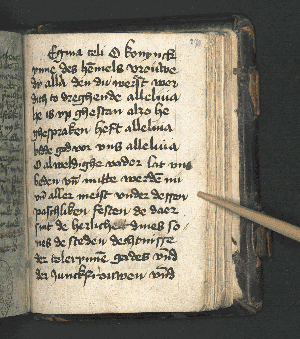 Regina celi O konynck
ynne des hemels vrouwe
dy alla den du werst wer
dich to dreghende alleluia
he is up ghestan alzo he
ghespraken heft alleluia
bidde god vor uns alleluia
O alweldighe vader lat uns
beden un mitte werden nu
un aller meist under dessen
paschliken festen de daer
sint de herlicheit dines so
nes de steden dechtnisse
der telerynne godes und
der junckfrouwen und